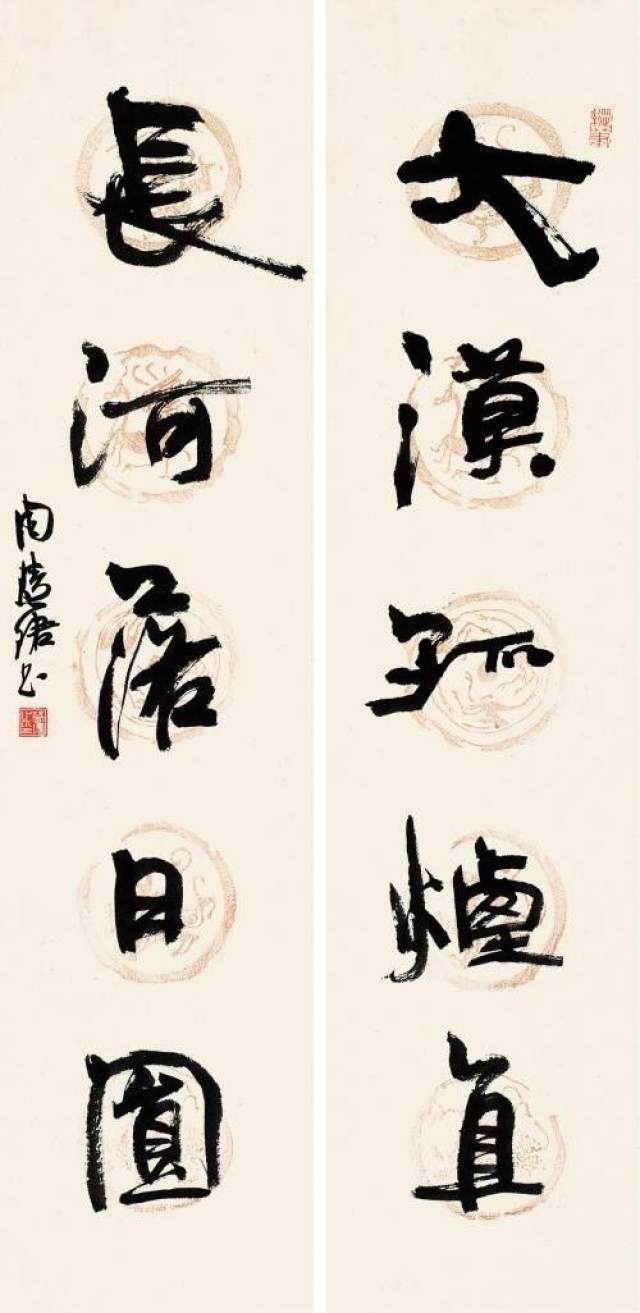 大漠孤煙直
長河落日圓
周慧珺书